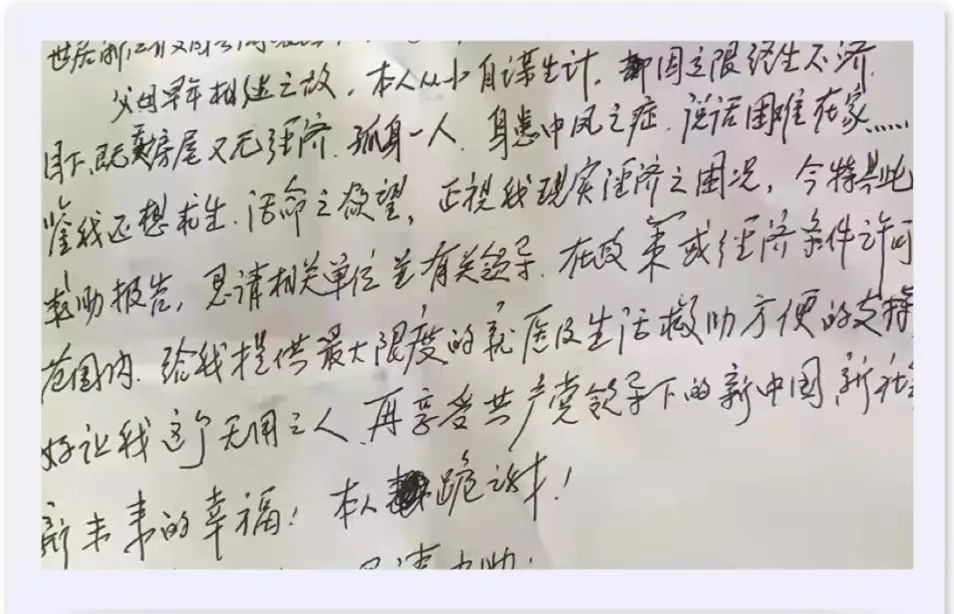 世居浙江
父母早年相继之故，本人从小自谋生计，却因之限终生不济，
目下既卖房屋又无经济，孤身一人，身患中风之症，说话困难在家……
鉴我还想求生、活命之欲望，正视我现实经济之困况，今特具此
救助报告，恳请相关单位并有关领导，在政策或经济条件许可
范围内，给我提供最大限度的就医及生活救助方便的支持
好让我这个无用之人，再享受共产党领导下的新中国，新社会
新未来的幸福！本人跪谢！